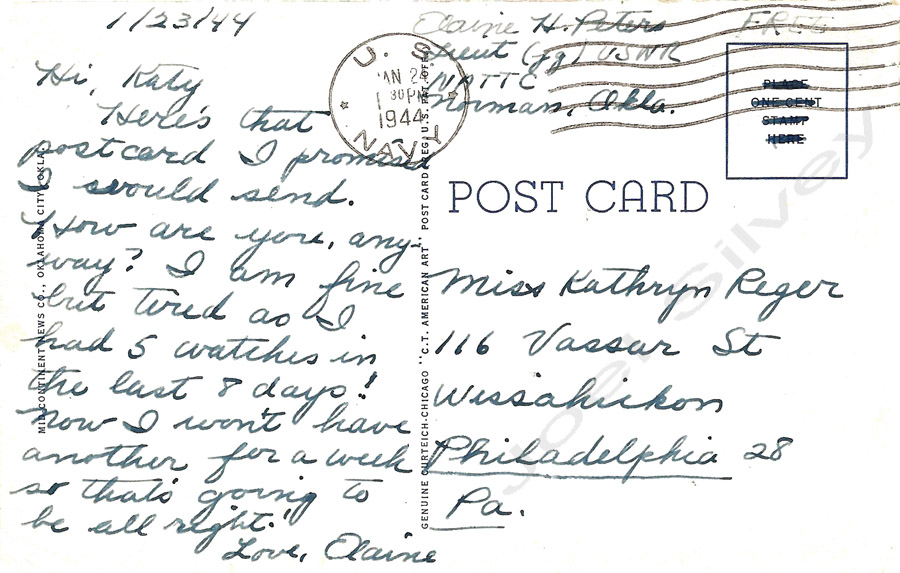 1/23/44
Hi, Katy
Here's that
postcard I promised
I would send.
How are you, any-
way? I am fine
but tired as I
had 5 watches in
the last 8 days!
Now I won't have
another for a week
so that's going to
be all right!
Love, Elaine
Elaine H. Peters
Lieut (jg) USNR
NATTC
Norman, Okla.
FREE
U. S. NAVY
JAN 24
1 30 PM
1944
PLACE
ONE CENT
STAMP
HERE
POST CARD
Miss Kathryn Reger
116 Vassar St
Wissahickon
Philadelphia 28
Pa.
MID-CONTINENT NEWS CO., OKLAHOMA CITY, OKLA.
GENUINE CURTEICH-CHICAGO "C.T. AMERICAN ART" POST CARD (REG. U.S. PAT. OFF.)
Joel Silvey